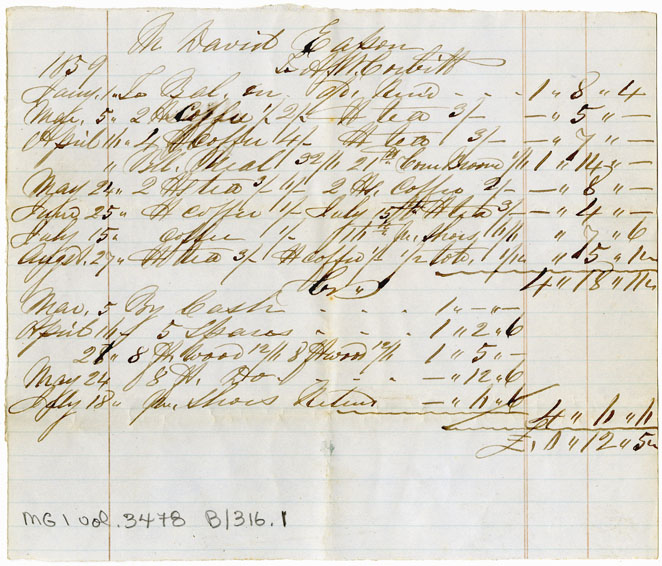 Mr David Eason
1859 To A. W. Corbitt
Jany. 1 " To Bal. on - - - 1 " 8 " 4
Mar. 5 " 2 lb Coffee 2/- lb tea 3/- — " 5 " —
April 11 " 4 lb Coffee 4/- lb tea 3/- — " 7 " —
" Bbl. Meal 1 " 4 " —
May 24 " 2 lb tea 6/- 2 lb Coffee 2/- — " 8 " —
June 25 " lb Coffee 1/- July 5th lb tea 3/- — " 4 " —
July 15 " Coffee 1/- pr. Shoes 6/6 " 7 " 6
Augst. 27 " lb tea 3/- lb Coffee 1/- " 15 " 1½
Cr 4 " 18 " 11½
Mar. 5 By Cash - - - 1 " — " —
April 11 " 5 Spars - - 1 " 2 " 6
" 8 ft wood 12/6 8 ft wood 12/6 1 " 5 " —
May 24 8 ft. Do - - - — " 12 " 6
July 18 " pr. Shoes Return — " 6 " 6
4 " 6 " 6
£ 0 " 12 " 5½
MG1 vol. 3478 B/316.1